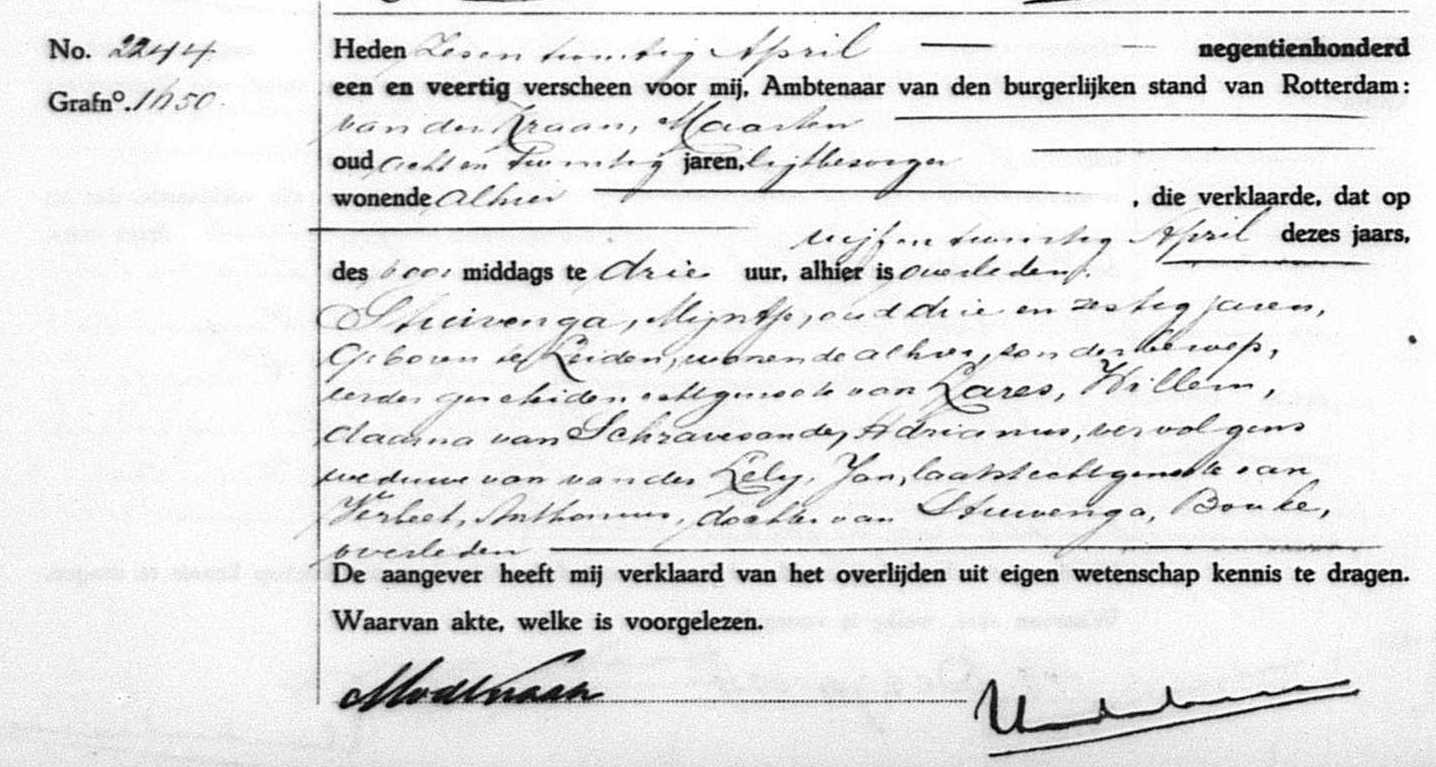 No. 2244
Heden Zesentwintig April negentienhonderd
een en veertig verscheen voor mij, Ambtenaar van den burgerlijken stand van Rotterdam:
Grafnº.
van der Kraan, Maarten
oud achtentwintig jaren, lijkbezorger
wonende alhier, die verklaarde, dat op
vijfentwintig April dezes jaars,
des voor middags te drie uur, alhier is overleden:
Stuivenga, Mijntje, oud drie en zestig jaren,
geboren te Leiden, wonende alhier, zonder beroep,
eerder gescheiden echtgenoote van Lares, Willem,
daarna van Schravesande, Adrianus, vervolgens
weduwe van van der Lely, Jan, laatst echtgenoote van
Verbeet, Anthonius, dochter van Stuivenga, Bouke,
overleden
De aangever heeft mij verklaard van het overlijden uit eigen wetenschap kennis te dragen.
Waarvan akte, welke is voorgelezen.
MvdKraan